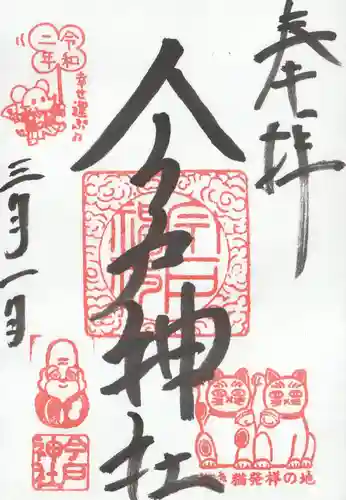 奉拝
今戸神社
三月一日
令和
二年
幸せ運ぶね
今戸
神社
猫発祥の地